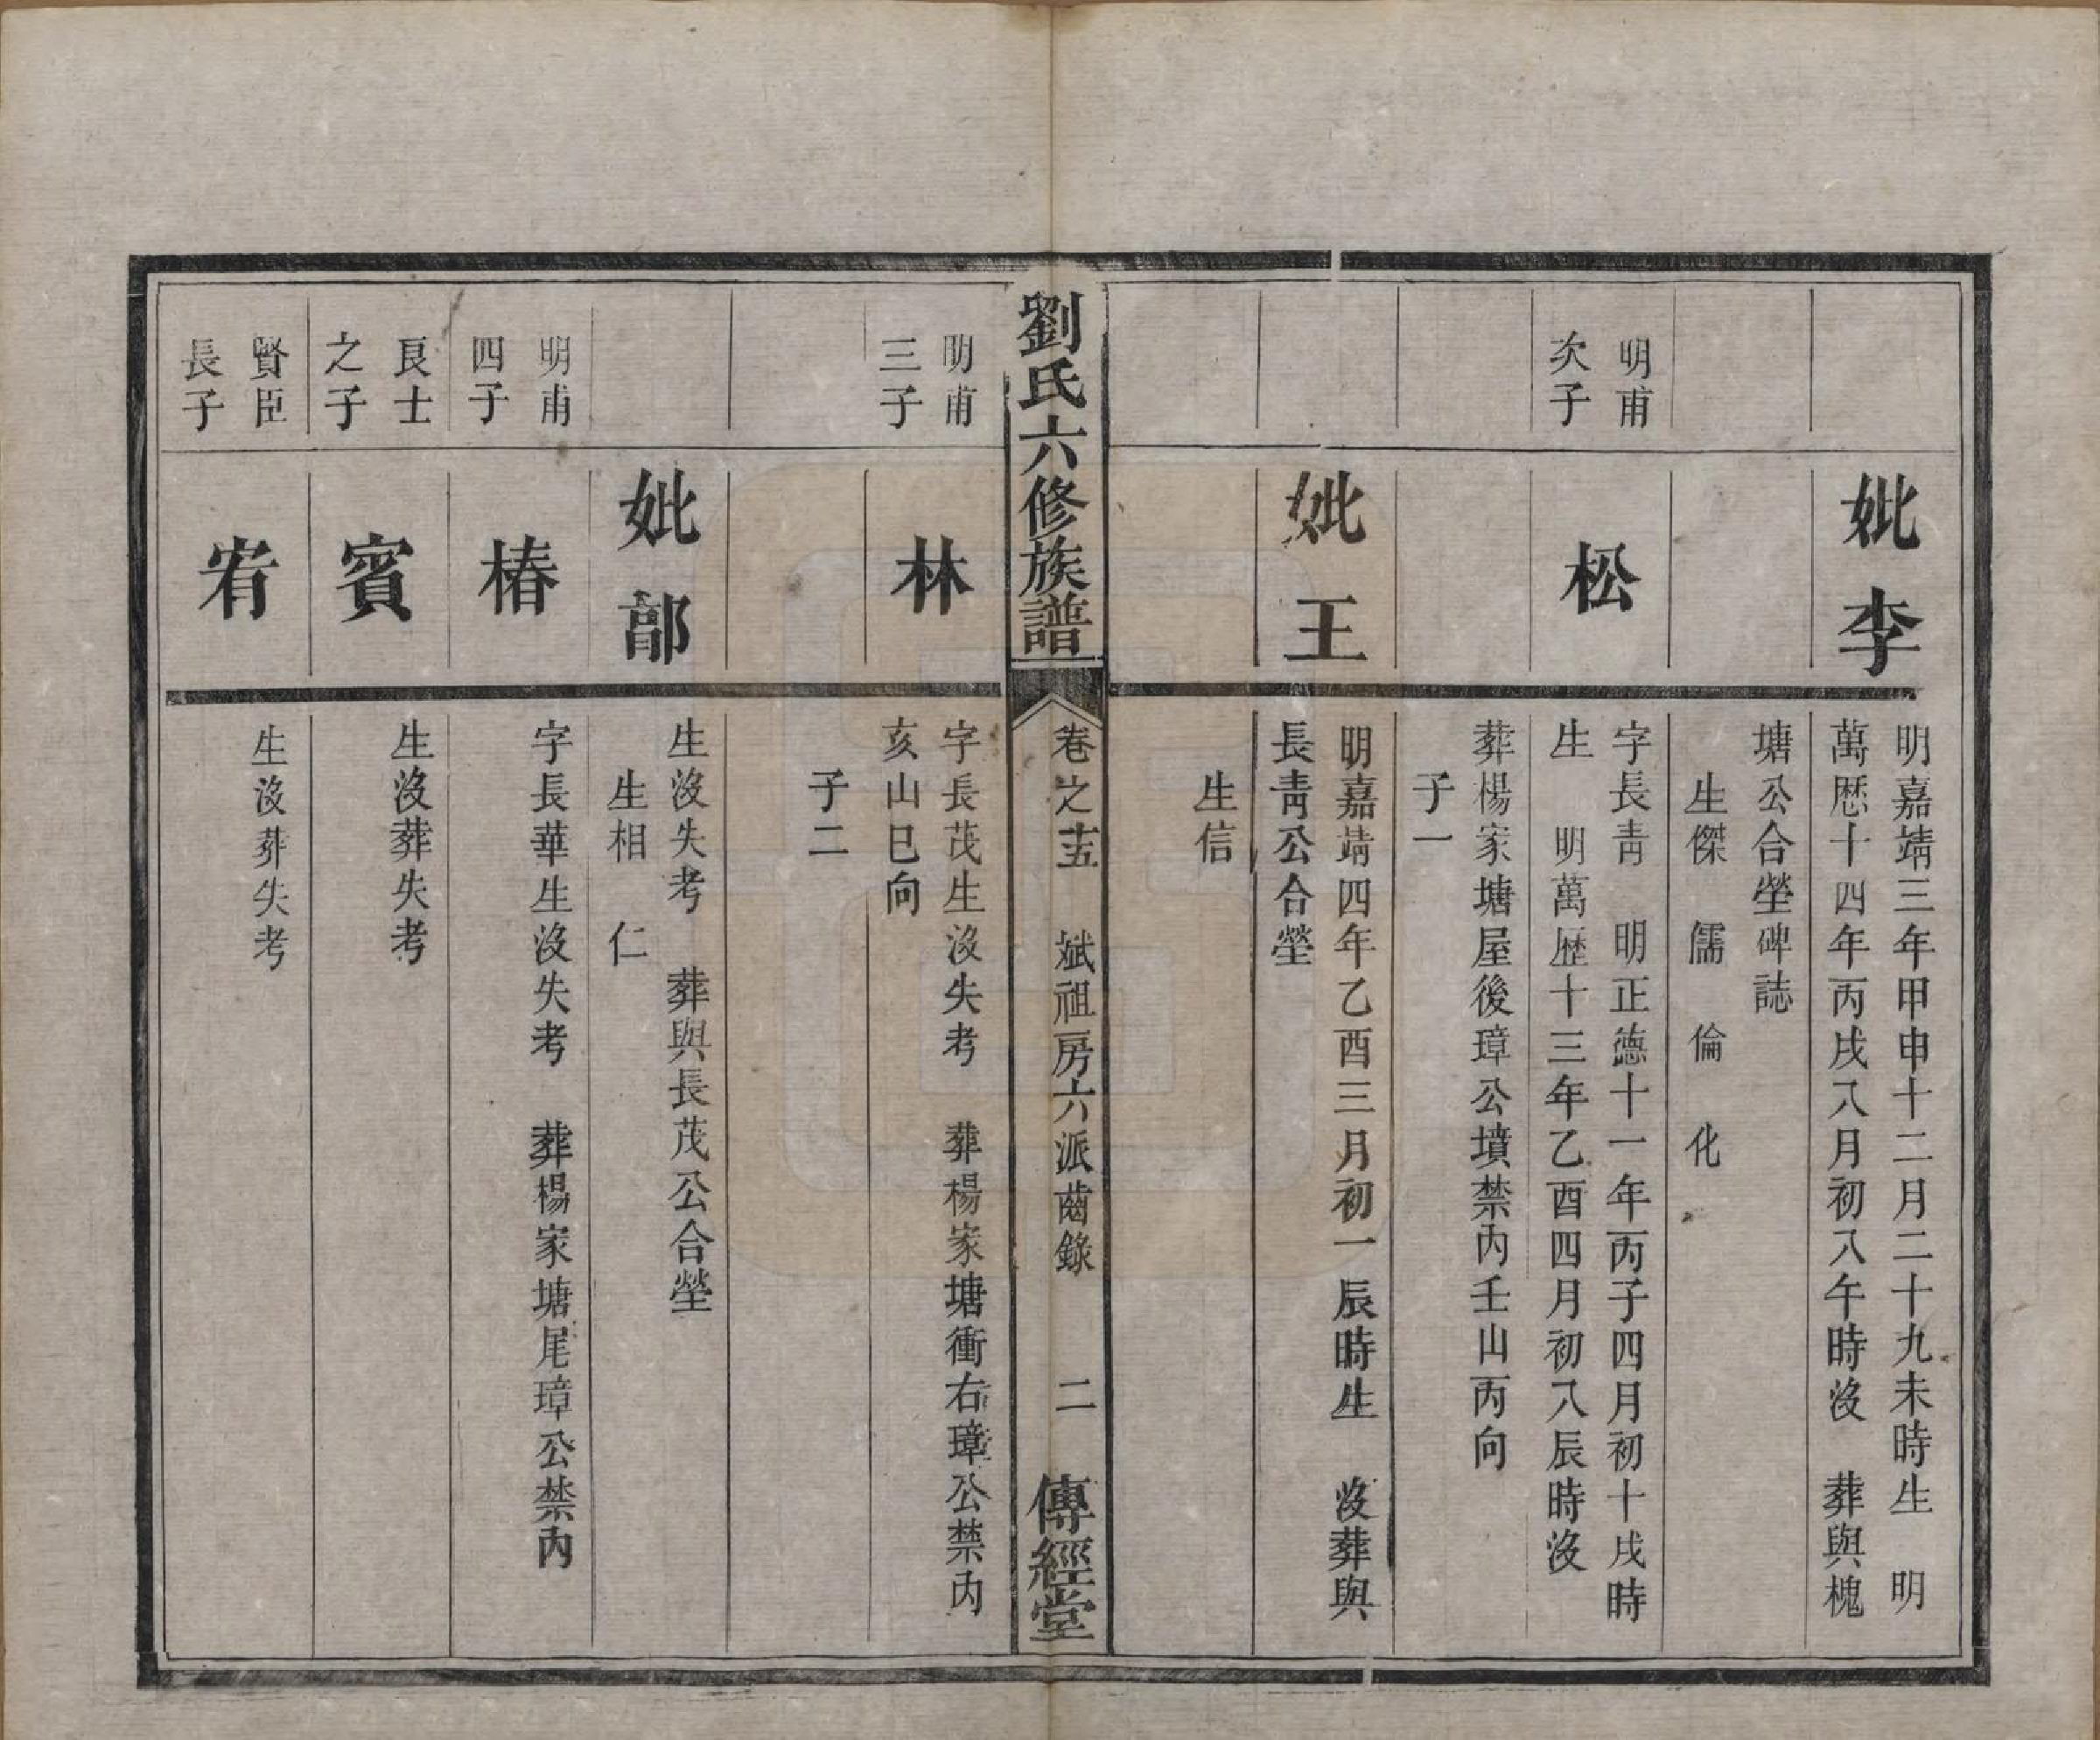 妣李
明嘉靖三年甲申十二月二十九未時生　明
萬歷十四年丙戌八月初八午時沒　葬與槐
塘公合塋碑誌
生傑　儒　倫　化
明甫
次子
松
字長青　明正德十一年丙子四月初十戌時
生　明萬歷十三年乙酉四月初八辰時沒
葬楊家塘屋後璋公墳禁內壬山丙向
子一
妣王
明嘉靖四年乙酉三月初一辰時生　沒葬與
長青公合塋
生信
劉氏六修族譜
卷之十五　斌祖房六派齒錄　二　傳經堂
明甫
三子
林
字長茂生沒失考　葬楊家塘衝右璋公禁內
亥山巳向
子二
妣鄣
生沒失考　葬與長茂公合塋
生相　仁
明甫
四子
椿
字長華生沒失考　葬楊家塘尾璋公禁內
良士
之子
賓
生沒葬失考
賢臣
長子
宥
生沒葬失考